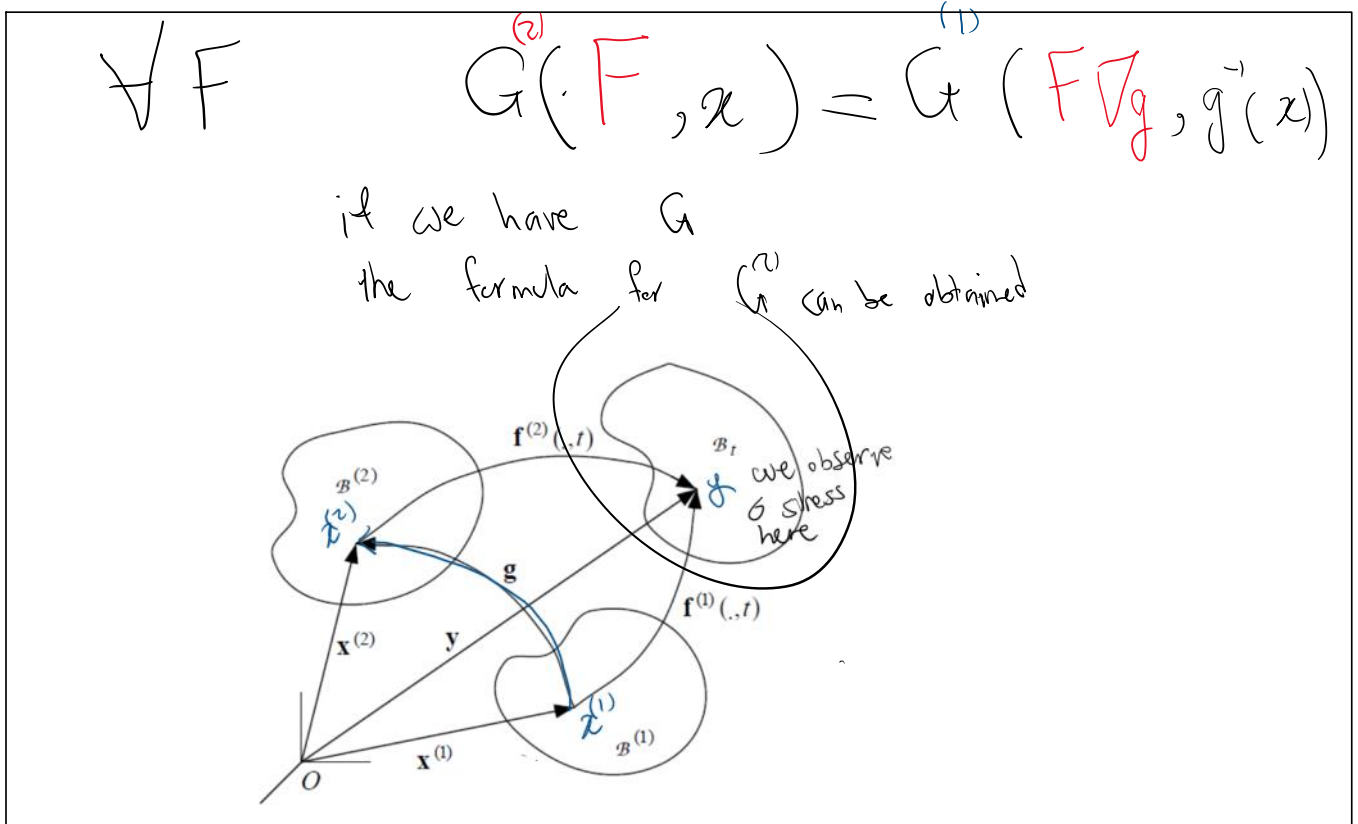 ∀F G⁽²⁾(F, x) = G⁽¹⁾(F∇g, g⁻¹(x))
if we have G
the formula for G⁽²⁾ can be obtained
f⁽²⁾(.,t)
ℬₜ
ℬ⁽²⁾
y we observe
σ stress
here
x⁽²⁾
g
f⁽¹⁾(.,t)
x⁽²⁾
y
x⁽¹⁾
ℬ⁽¹⁾
x⁽¹⁾
O